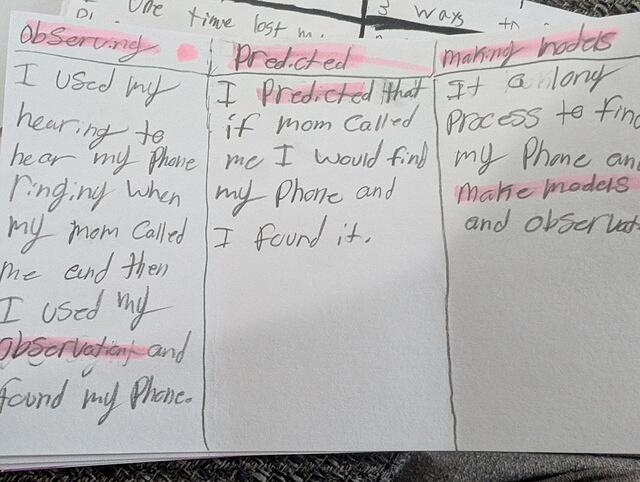 One time lost m.
3 ways
Observing
I used my
hearing to
hear my Phone
ringing when
my mom called
me and then
I used my
observations and
found my Phone.
Predicted
I Predicted that
if mom called
me I would find
my Phone and
I found it.
making models
It a long
Process to find
my Phone and
make models
and observat